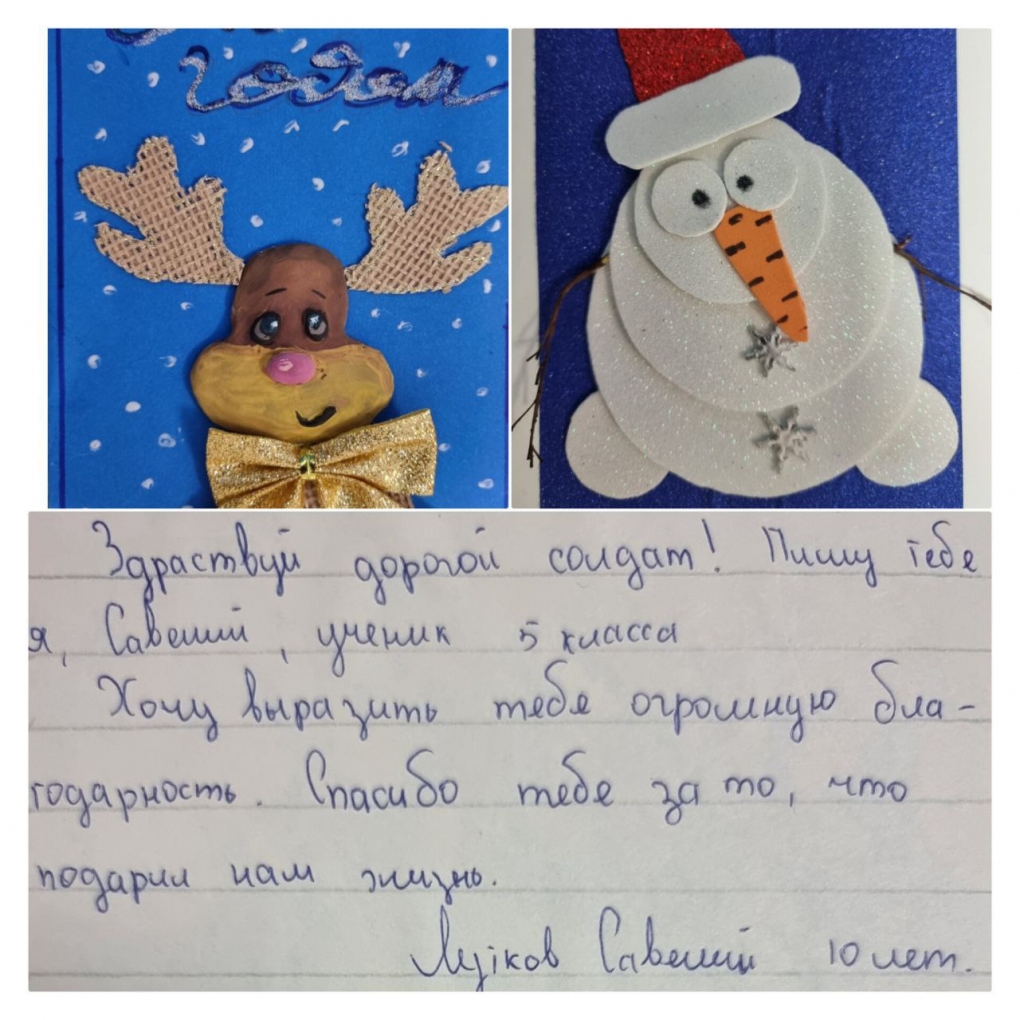 годом
Здраствуй дорогой солдат! Пишу тебе
я, Савелий, ученик 5 класса
Хочу выразить тебе огромную бла-
годарность. Спасибо тебе за то, что
подарил нам жизнь.
Савелий 10 лет.